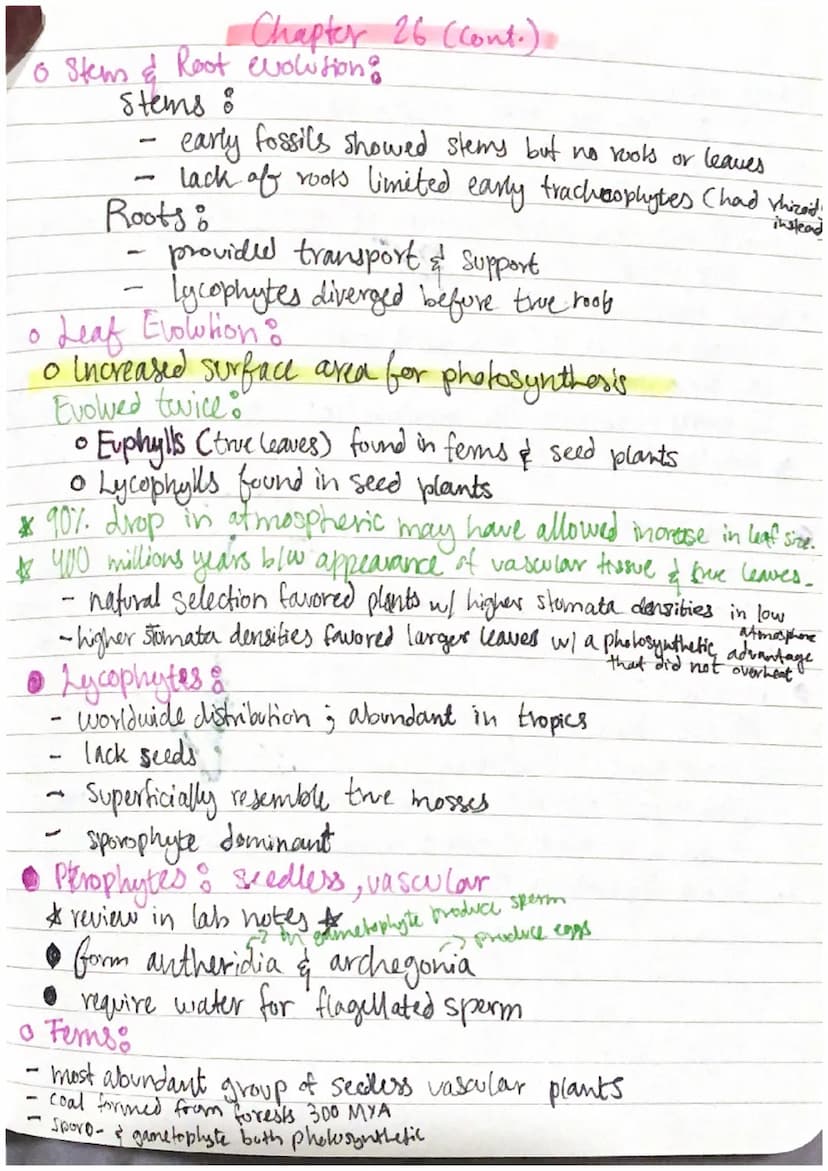 Chapter 26 (Cont.)
o Stems & Root evolution:
Stems:
- early fossils showed stems but no roots or leaves
- lack of roots limited early tracheophytes (had rhizoid instead
Roots:
- provided transport & support
- Lycophytes diverged before true roots
o Leaf Evolution:
o Increased surface area for photosynthesis
Evolved twice:
o Euphylls (true leaves) found in ferns & seed plants
o Lycophylls found in seed plants
* 90% drop in atmospheric may have allowed increase in leaf size.
* 400 millions years b/w appearance of vascular tissue & true leaves.
- natural selection favored plants w/ higher stomata densities in low atmosphere
- higher stomata densities favored larger leaves w/ a photosynthetic advantage that did not overheat
● Lycophytes:
- worldwide distribution; abundant in tropics
- lack seeds
- Superficially resemble true mosses
- sporophyte dominant
● Pterophytes: seedless, vascular
* review in lab notes *
→ in gametophyte produce sperm
→ produce eggs
● form antheridia & archegonia
● require water for flagellated sperm
o Ferns:
- most abundant group of seedless vascular plants
- coal formed from forests 300 MYA
- sporo- & gametophyte both photosynthetic